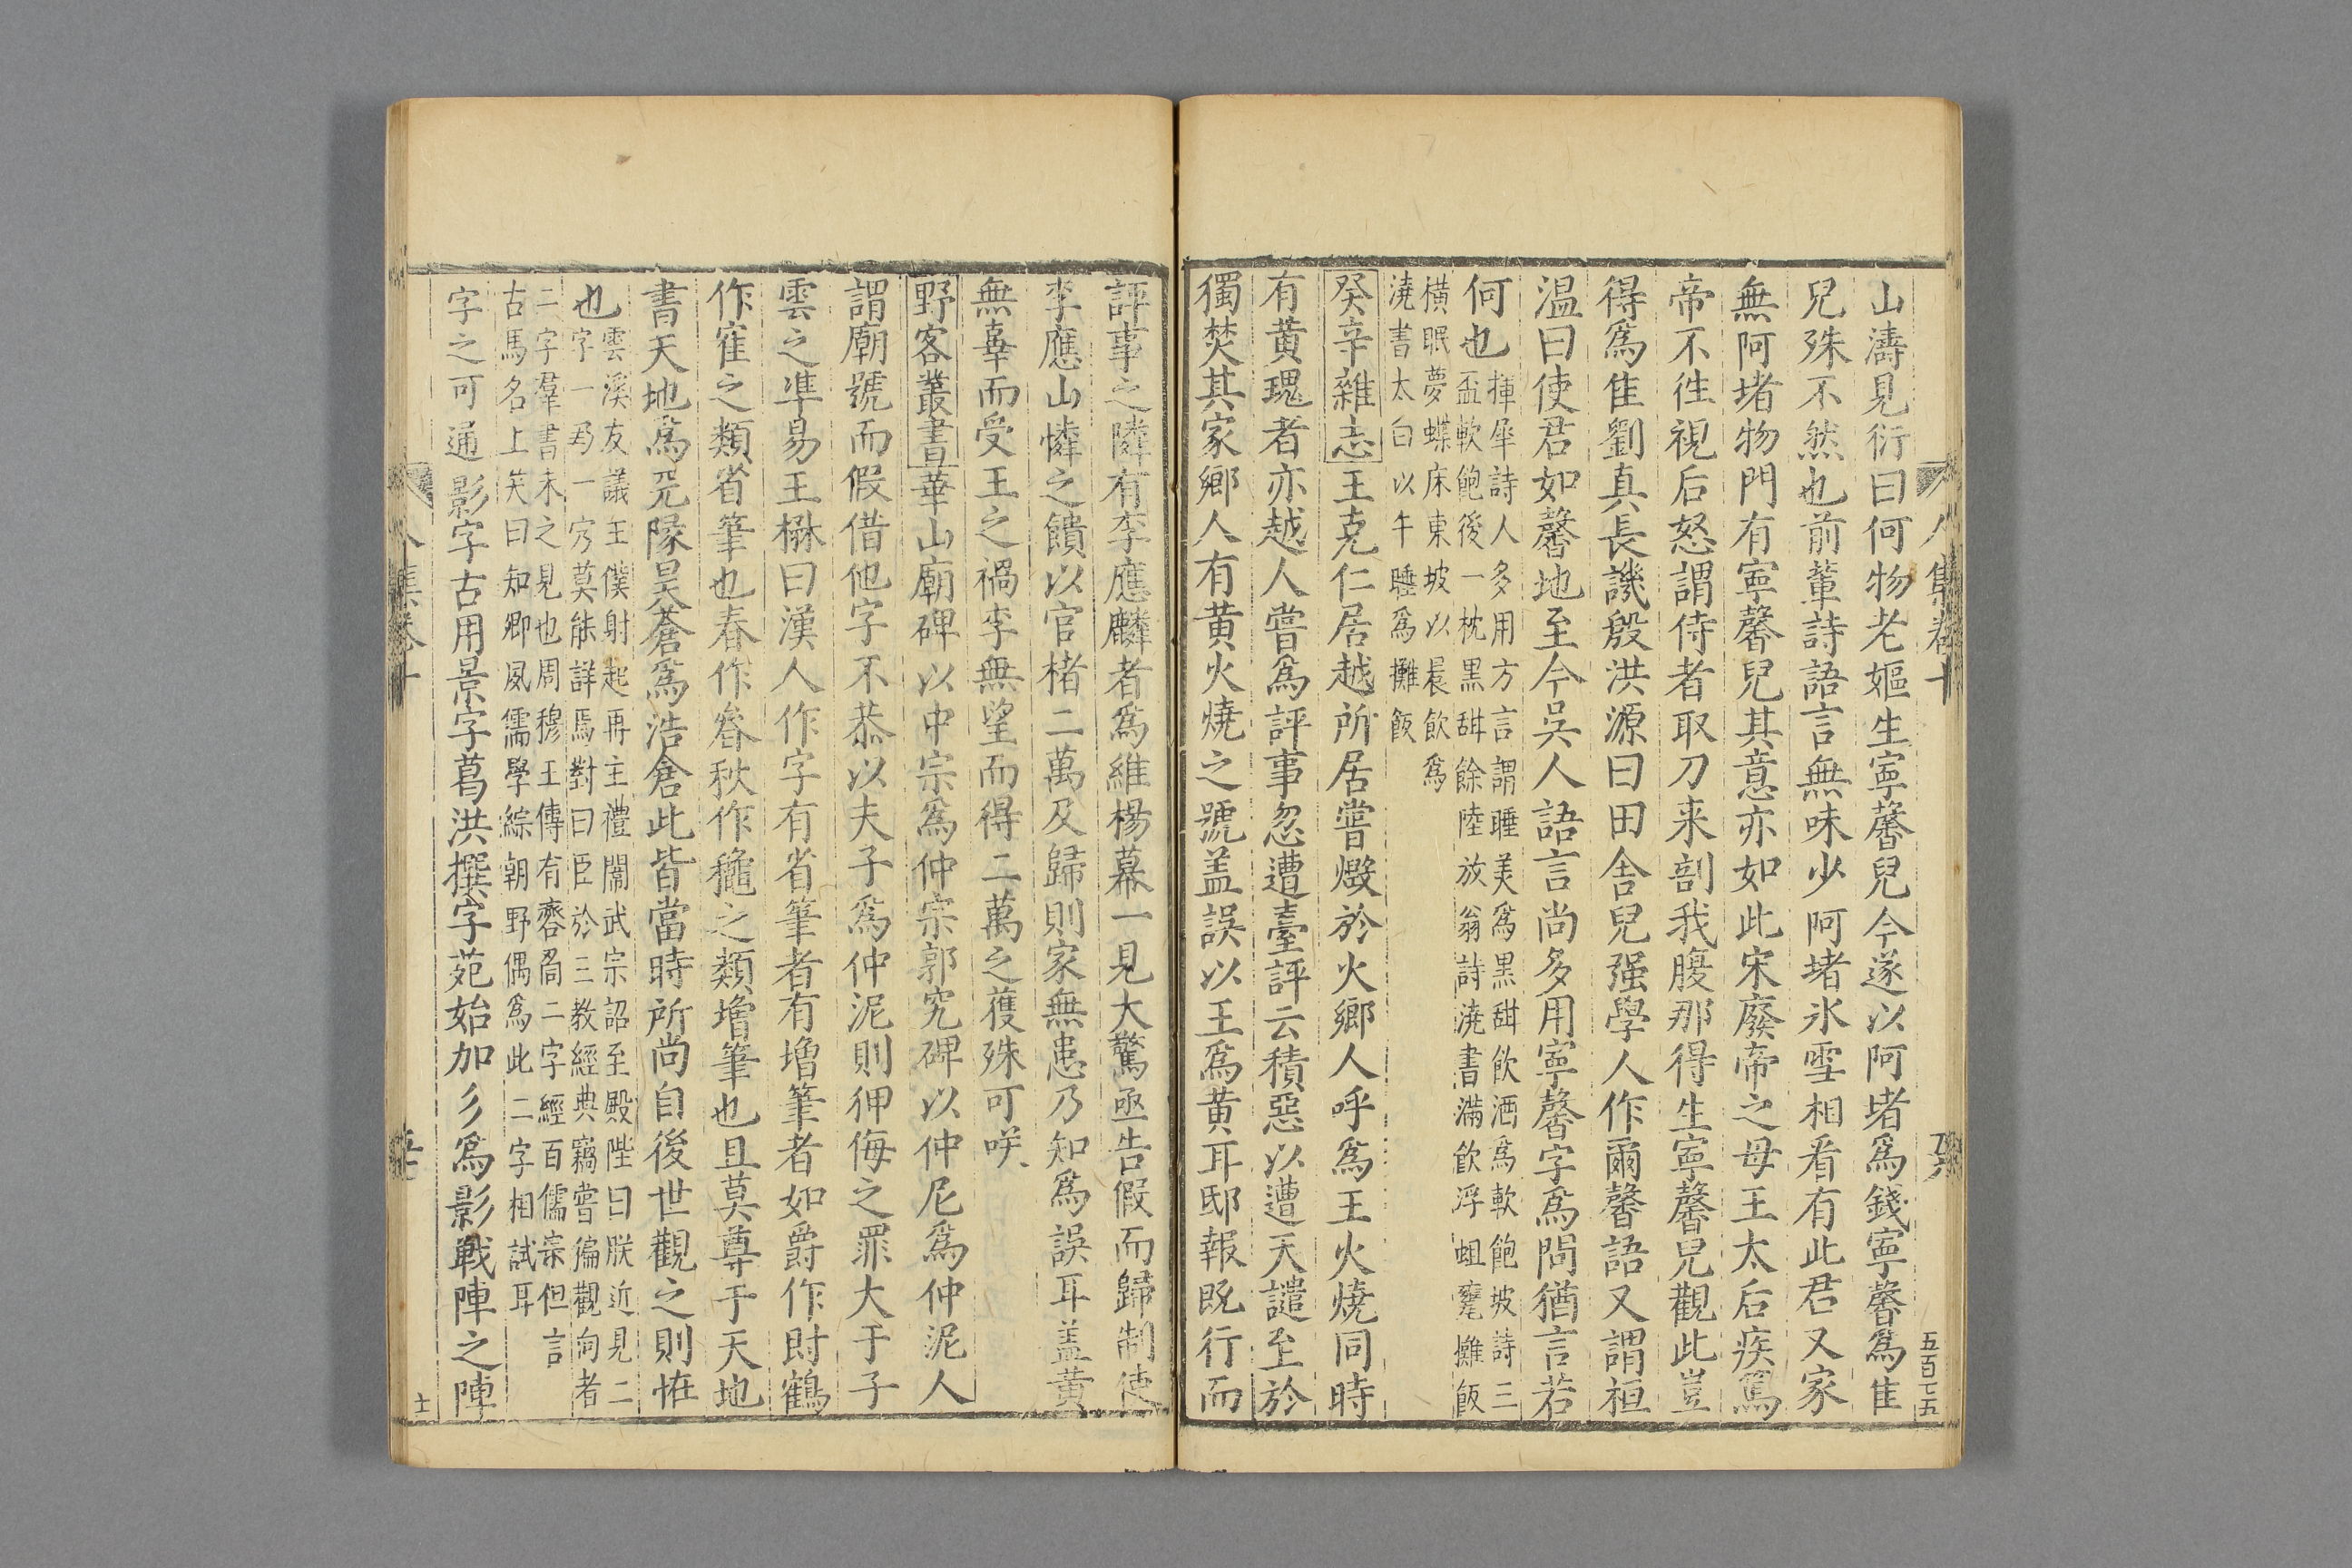 山濤見衍曰何物老嫗生寧馨兒今遂以阿堵爲錢寧馨爲隹
兒殊不然也前輩詩語言無味少阿堵氷雪相看有此君又家
無阿堵物門有寧馨兒其意亦如此宋廢帝之母王太后疾篤
帝不徃視后怒謂侍者取刀来剖我腹那得生寧馨兒觀此豈
得爲隹劉真長譏殷洪源曰田舎兒强學人作爾馨語又謂桓
温曰使君如馨地至今吳人語言尚多用寧馨字爲問猶言若
何也
揮犀詩人多用方言謂睡美爲黒甜飲酒爲軟飽坡詩三
盃軟飽後一枕黒甜餘陸放翁詩澆書滿飲浮蛆甕攤飯
橫眠夢蝶床東坡以晨飲爲
澆書太白以午睡爲攤飯
癸辛雜志王克仁居越所居嘗燬於火鄉人呼爲王火燒同時
有黄瑰者亦越人嘗爲評事忽遭臺評云積惡以遭天譴至於
獨焚其家鄉人有黄火燒之號盖誤以王爲黄耳邸報既行而
八集卷十
五百七五
評事之隣有李應麟者爲維楊幕一見大驚亟告假而歸制使
李應山憐之饋以官楮二萬及歸則家無恙乃知爲誤耳盖黄
無辜而受王之禍李無望而得二萬之獲殊可咲
野客叢書華山廟碑以中宗爲仲宗郭究碑以仲尼爲仲泥人
謂廟號而假借他字不恭以夫子爲仲泥則狎侮之罪大于子
雲之凖易王楙曰漢人作字有省筆者有增筆者如爵作䏁鶴
作隺之類省筆也春作旾秋作龝之類增筆也且莫尊于天地
書天地爲兲隊昊蒼爲浩倉此皆當時所尚自後世觀之則恠
也
雲溪友議王僕射起再主禮闈武宗詔至殿陛曰朕近見二
字一𢀖一𡧤莫能詳焉對曰臣於三教經典竊嘗徧觀向者
二字羣書未之見也周穆王傳有䯬䯨二字經百儒宗但言
古馬名上笑曰知卿夙儒學綜朝野偶爲此二字相試耳
字之可通影字古用景字葛洪撰字苑始加彡爲影戰陣之陣
八集卷十
十一